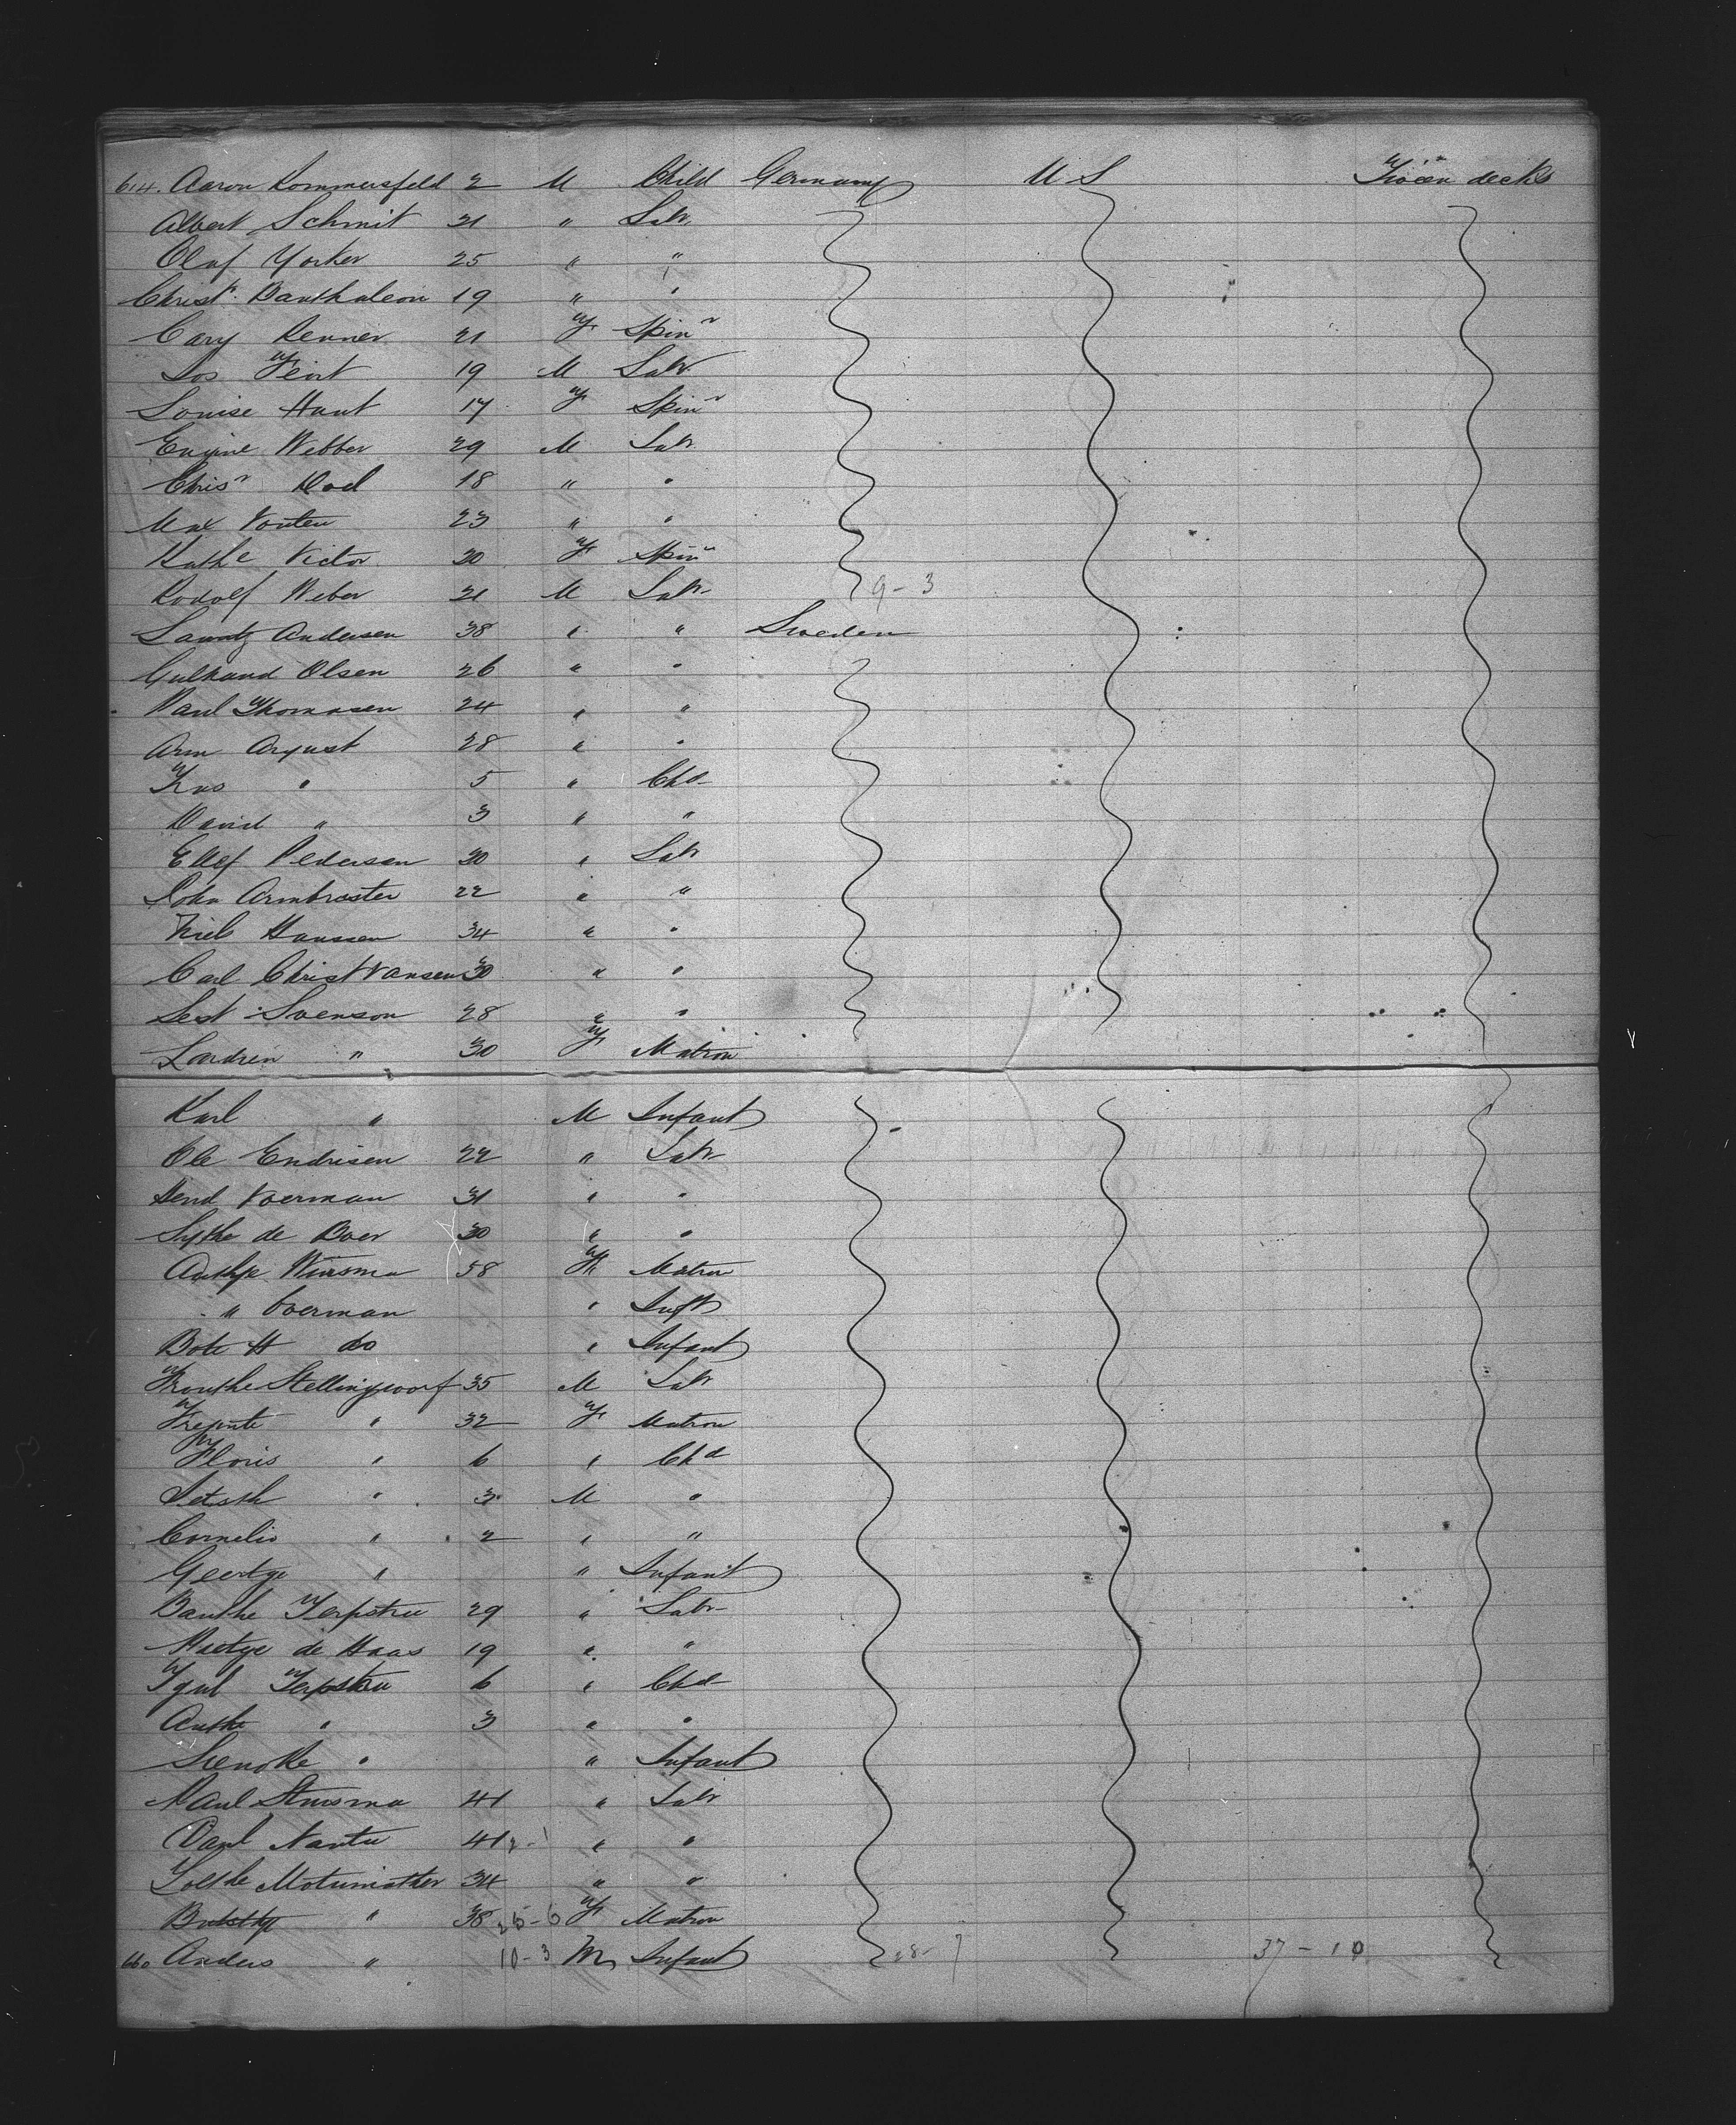 614. Aaron Kommersfeld 2 M Child Germany U S Tween decks
Albert Schmit 21 " Labr
Olaf Yorker 25 " "
Christn Banthaleon 19 " "
Cary Renner 21 F Spinr
Jos Feist 19 M Labr
Louise Haut 17 F Spinr
Eugine Webber 29 M Labr
Chrisn Dod 18 " "
Max Vonten 23 " "
Kathe Victor 20 F Spinr
Rodolf Weber 21 M Labr 9-3
Lauritz Andersen 38 " " Sweden
Gulhaud Olsen 26 " "
Paul Thomasen 24 " "
Arm August 28 " "
" 5 " Chd
David " 3 " "
Ellef Pedersen 20 " Labr
John Armbroster 22 " "
Niels Hanssen 34 " "
Carl Christvansen 30 " "
Svenson 28 " "
" 30 F Matron
Karl " M Infant
Ole Endrisen 22 " Labr
Hend Voerman 31 " "
Sytke de Boer 30 " "
Antkje Wiersma 58 F Matron
" Voerman " Inft
Bote H do " Infant
Froukhe Stellingwoorf 35 M Labr
" 32 F Matron
Floris " 6 " Chd
Jetsth " 3 M "
Cornelis " 2 " "
Geertje " " Infant
Bauthe Terpstra 29 " Labr
de Haas 19 " "
Terpstra 6 " Chd
Antke " 3 " "
" " Infant
Paul Stursma 41 " Labr
Paul 41 2-1 " "
34 " "
" 38 25-6 F Matron
660 Anders " 10-3 M Infant 28-7 37-10